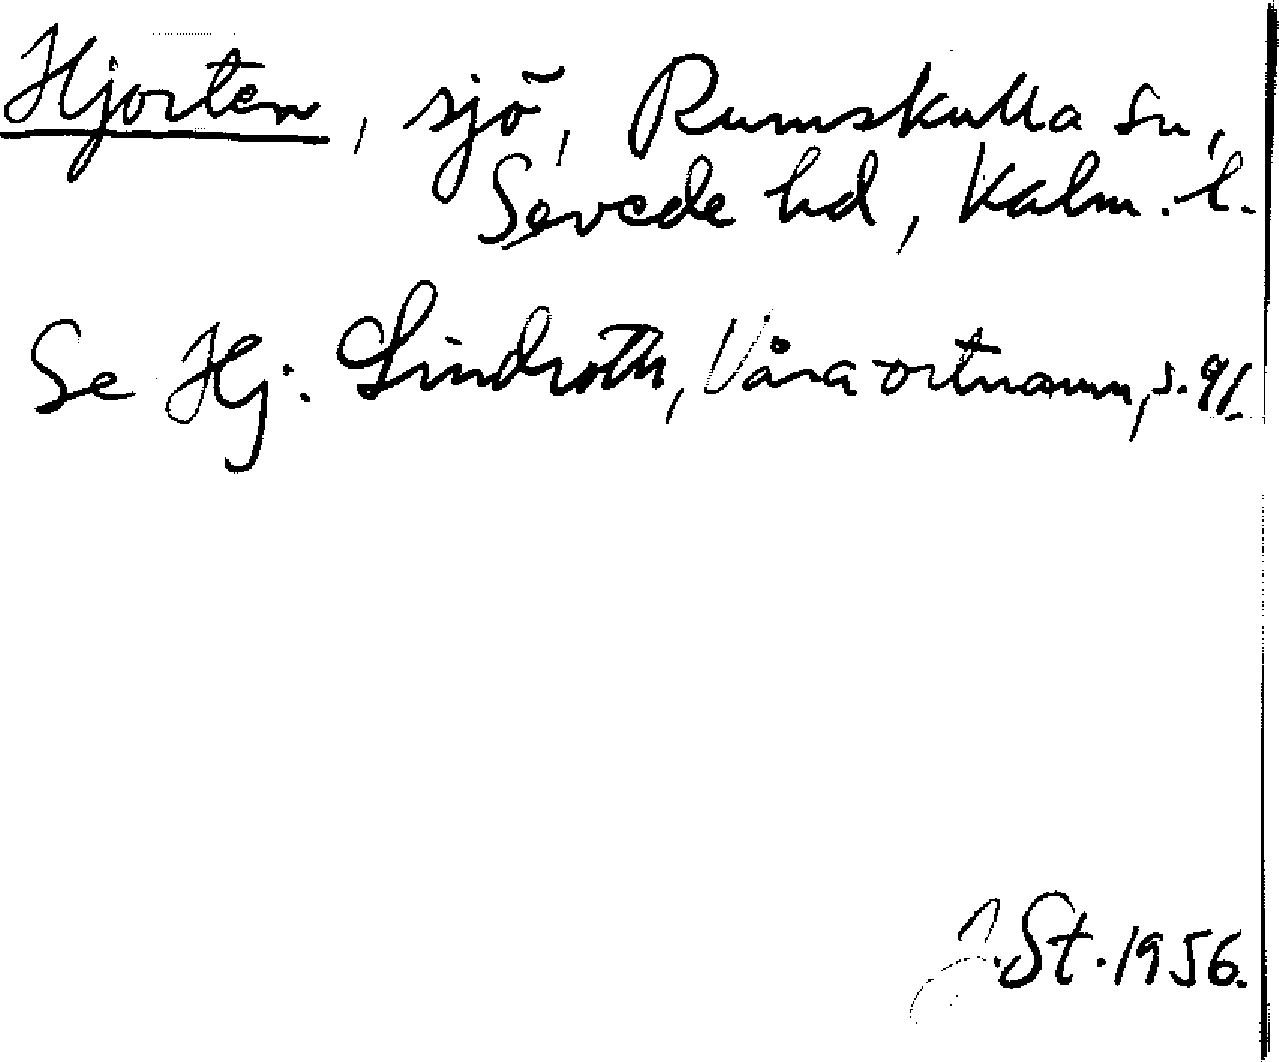 Hjorten, sjö, Rumskulla sn,
Sevede hd, Kalm. l.
Se Hj. Lindroth, Våra ortnamn, s. 91.
J. St. 1956.